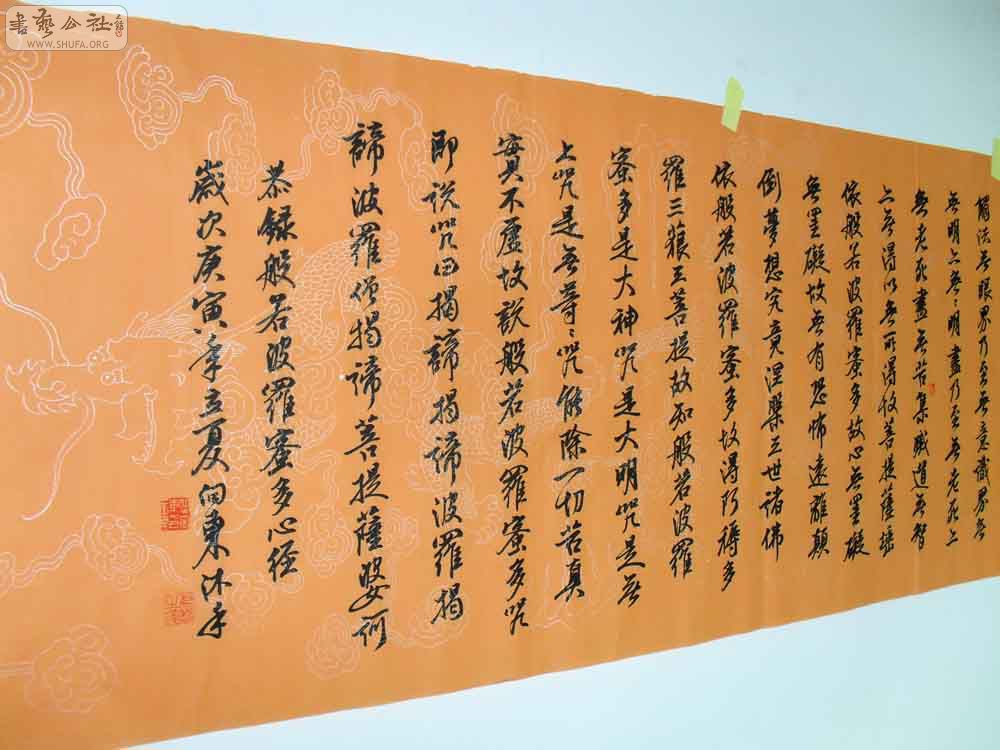 書藝公社
WWW.SHUFA.ORG
觸法無眼界乃至無意識界無
無明亦無〻明盡乃至無老死亦
無老死盡無苦集滅道無智
亦無得以無所得故菩提薩埵
依般若波羅蜜多故心無罣礙
無罣礙故無有恐怖遠離顛
倒夢想究竟涅槃三世諸佛
依般若波羅蜜多故得阿耨多
羅三藐三菩提故知般若波羅
蜜多是大神咒是大明咒是無
上咒是無等〻咒能除一切苦真
實不虛故說般若波羅蜜多咒
即說咒曰揭諦揭諦波羅揭
諦波羅僧揭諦菩提薩婆訶
恭録般若波羅蜜多心经
歲次庚寅年立夏向東沐手